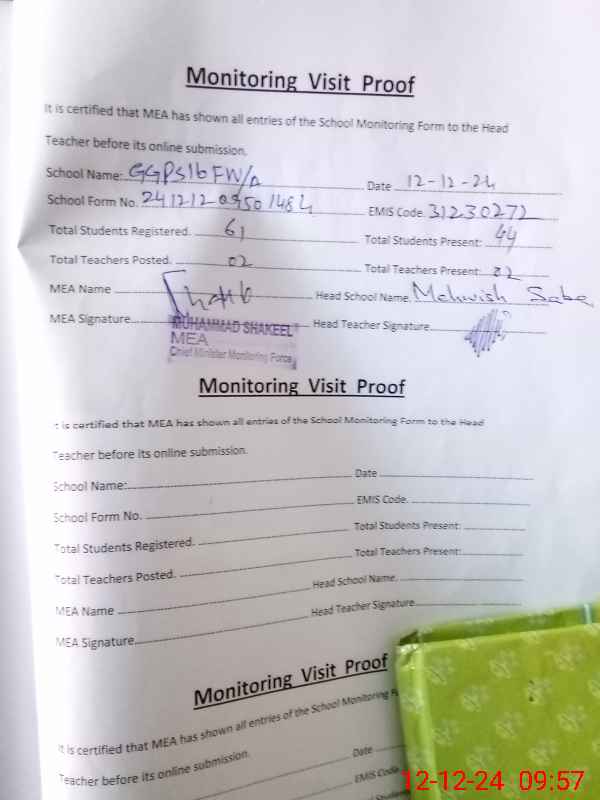 Monitoring Visit Proof
It is certified that MEA has shown all entries of the School Monitoring Form to the Head
Teacher before its online submission.
School Name: GGPS 16 FW/A Date 12-12-24
School Form No. EMIS Code. 31230272
Total Students Registered. 61 Total Students Present: 44
Total Teachers Posted. 02 Total Teachers Present: 02
MEA Name Head School Name. Mehwish Saba
MEA Signature Head Teacher Signature
MUHAMMAD SHAKEEL
MEA
Chief Minister Monitoring Force
Monitoring Visit Proof
It is certified that MEA has shown all entries of the School Monitoring Form to the Head
Teacher before its online submission.
School Name: Date
School Form No. EMIS Code.
Total Students Registered. Total Students Present:
Total Teachers Posted. Total Teachers Present:
MEA Name Head School Name.
MEA Signature Head Teacher Signature
Monitoring Visit Proof
It is certified that MEA has shown all entries of the School Monitoring
Teacher before its online submission.
Date
EMIS Code
12-12-24 09:57